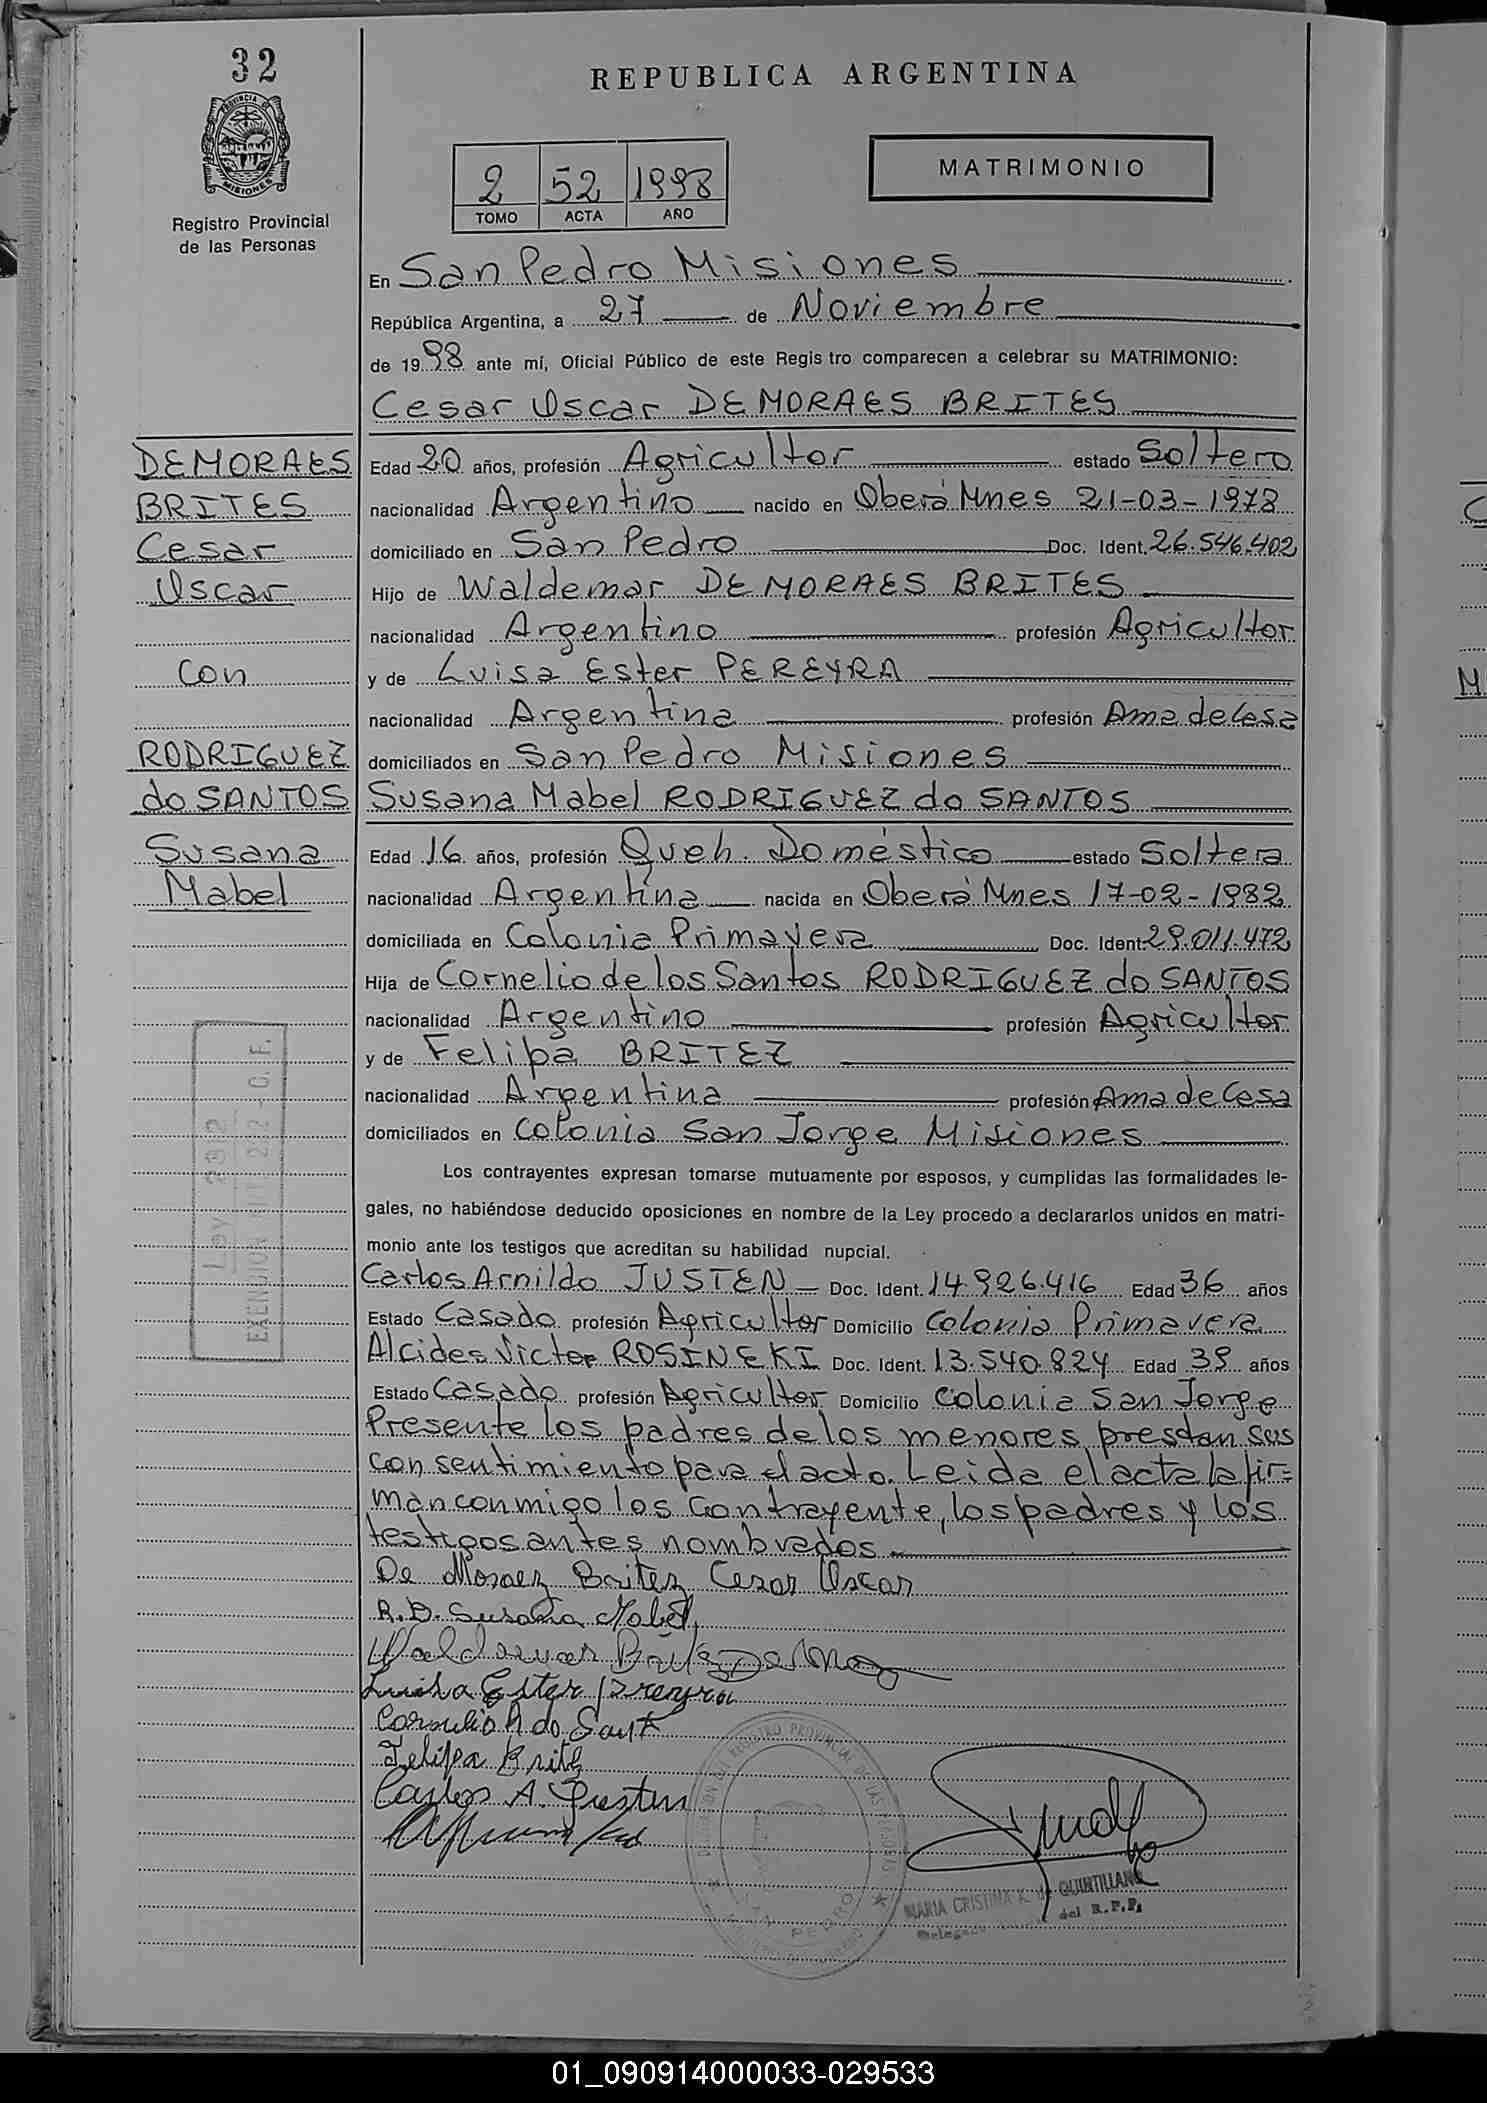 32
REPUBLICA ARGENTINA
PROVINCIA DE
MISIONES
Registro Provincial
de las Personas
2 52 1998
TOMO ACTA AÑO
MATRIMONIO
En San Pedro Misiones
República Argentina, a 27 de Noviembre
de 1998 ante mí, Oficial Público de este Regis tro comparecen a celebrar su MATRIMONIO:
Cesar Oscar DEMORAES BRITES
DEMORAES
BRITES
Cesar
Oscar
con
RODRIGUEZ
do SANTOS
Susana
Mabel
Edad 20 años, profesión Agricultor estado Soltero
nacionalidad Argentino nacido en Oberá Mnes 21-03-1978
domiciliado en San Pedro Doc. Ident. 26.546.402
Hijo de Waldemar DEMORAES BRITES
nacionalidad Argentino profesión Agricultor
y de Luisa Ester PEREYRA
nacionalidad Argentina profesión Ama de Casa
domiciliados en San Pedro Misiones
Susana Mabel RODRIGUEZ do SANTOS
Edad 16 años, profesión Queh. Doméstico estado Soltera
nacionalidad Argentina nacida en Oberá Mnes 17-02-1982
domiciliada en Colonia Primavera Doc. Ident 29.011.472
Hija de Cornelio de los Santos RODRIGUEZ do SANTOS
nacionalidad Argentino profesión Agricultor
y de Felipa BRITEZ
nacionalidad Argentina profesión Ama de Casa
domiciliados en Colonia San Jorge Misiones
Los contrayentes expresan tomarse mutuamente por esposos, y cumplidas las formalidades le-
gales, no habiéndose deducido oposiciones en nombre de la Ley procedo a declararlos unidos en matri-
monio ante los testigos que acreditan su habilidad nupcial.
Carlos Arnildo JUSTEN Doc. Ident. 14.926.416 Edad 36 años
Estado Casado profesión Agricultor Domicilio Colonia Primavera
Alcides Victor ROSINEKI Doc. Ident. 13.540.824 Edad 39 años
Estado Casado profesión Agricultor Domicilio Colonia San Jorge
Presente los padres de los menores prestan sus
consentimiento para el acto. Leida el acta la fir=
man conmigo los contrayente, los padres y los
testigos antes nombrados
De Moraez Britez Cezar Oscar
R.D. Susana Mabel
Waldemar Britez
Luisa Ester Pereyra
Cornelio R do Sant
Felipa Brite
Carlos A. Justen
REGISTRO PROVINCIAL DE LAS PERSONAS
SAN PEDRO
MARIA CRISTINA de QUINTILLAN
del R.P.P.
Ley 2
EXENCION
01_090914000033-029533